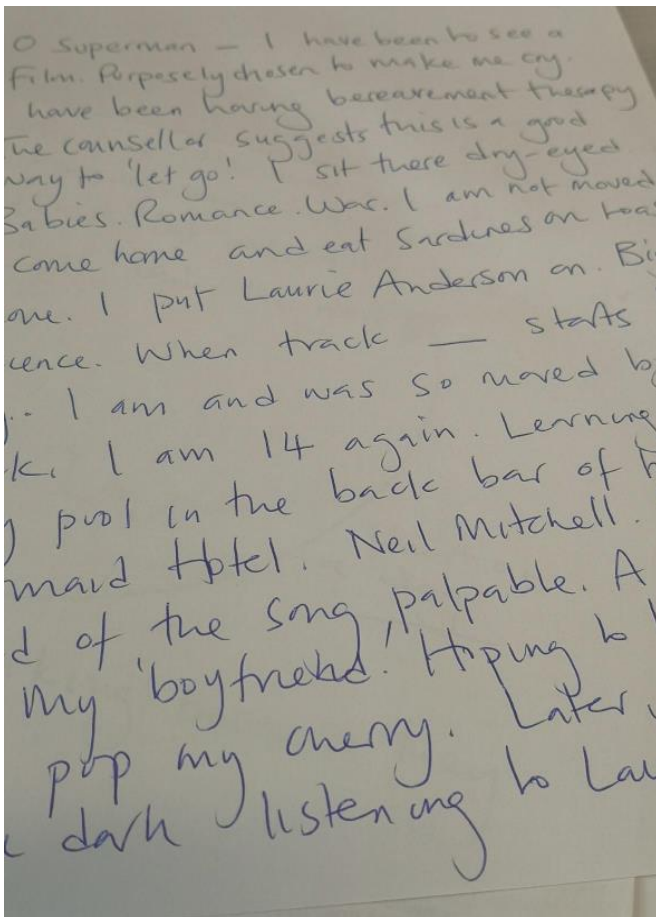 O Superman – I have been to see a
film. Purposely chosen to make me cry.
have been having bereavement therapy
The counsellor suggests this is a good
way to 'let go'! I sit there dry-eyed
Babies. Romance. War. I am not moved
come home and eat Sardines on toas
one. I put Laurie Anderson on. Bi
ence. When track — starts
I am and was so moved b
k. I am 14 again. Learning
pool in the back bar of
maid Hotel. Neil Mitchell.
d of the song palpable. A
my 'boyfriend'! Hoping to
pop my cherry. Later
dark listening to Lau